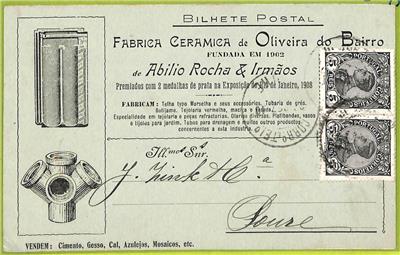 BILHETE POSTAL
FABRICA CERAMICA de Oliveira do Bairro
FUNDADA EM 1902
de Abilio Rocha & Irmãos
Premiados com 2 medalhas de prata na Exposição do Rio de Janeiro, 1908
FABRICAM: Telha typo Marselha e seus accessorios. Tubaria de grés.
Tejolaria vermelha, macissa e
Especialidade em tejolaria e peças refractarias. Olarias diversas. Platibandas, vasos
e tijolos para jardim. Tubos para drenagem e muitos outros productos
concernentes a esta industria.
Ill.mos Snr.s
J. Zink & C.a
Soure
VENDEM: Cimento, Gesso, Cal, Azulejos, Mosaicos, etc.